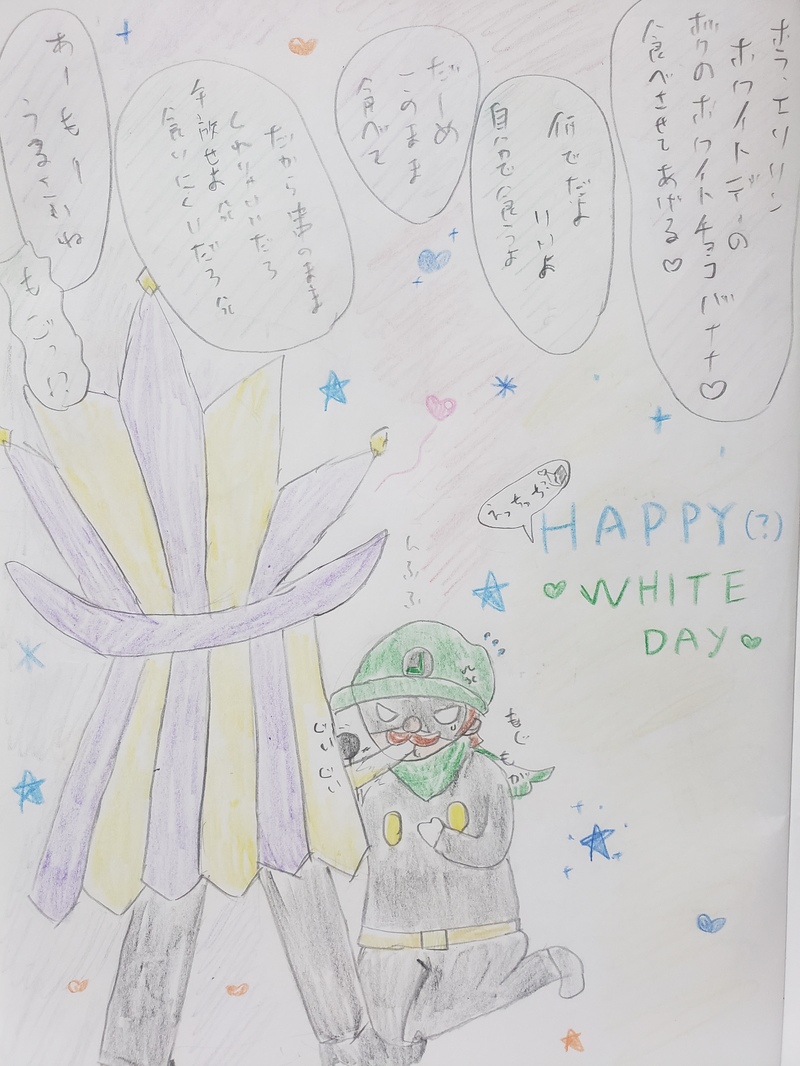 ホラ、エリリン
ホワイトデーの
ボクのホワイトチョコバナナ♡
食べさせてあげる♡
何でだよ
いいよ
自分で食うよ
だーめ
このまま
食べて
だから串のまま
くれりゃいいだろ
手放せよ
食いにくいだろ
あーもー
うるさいね
もごっ!?
えっちっち?
HAPPY(?)
WHITE
DAY
んふふ
もじ
もが
ぐい
ぐい
L